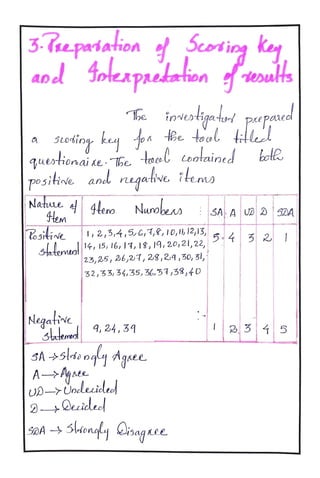 3. Preparation of Scoring Key
and Interpretation of results
The investigator prepared
a scoring key for the tool titled
questionaire. The tool contained both
positive and negative items
Nature of Item Item Numbers : SA A UD D SDA
Positive Statement 1, 2, 3, 4, 5, 6, 7, 8, 10, 11, 12, 13, 5 4 3 2 1
14, 15, 16, 17, 18, 19, 20, 21, 22,
23, 25, 26, 27, 28, 29, 30, 31,
32, 33, 34, 35, 36, 37, 38, 40
Negative Statement 9, 24, 39 :- 1 2 3 4 5
SA → Strongly Agree
A → Agree
UD → Undecided
D → Decided
SDA → Strongly Disagree